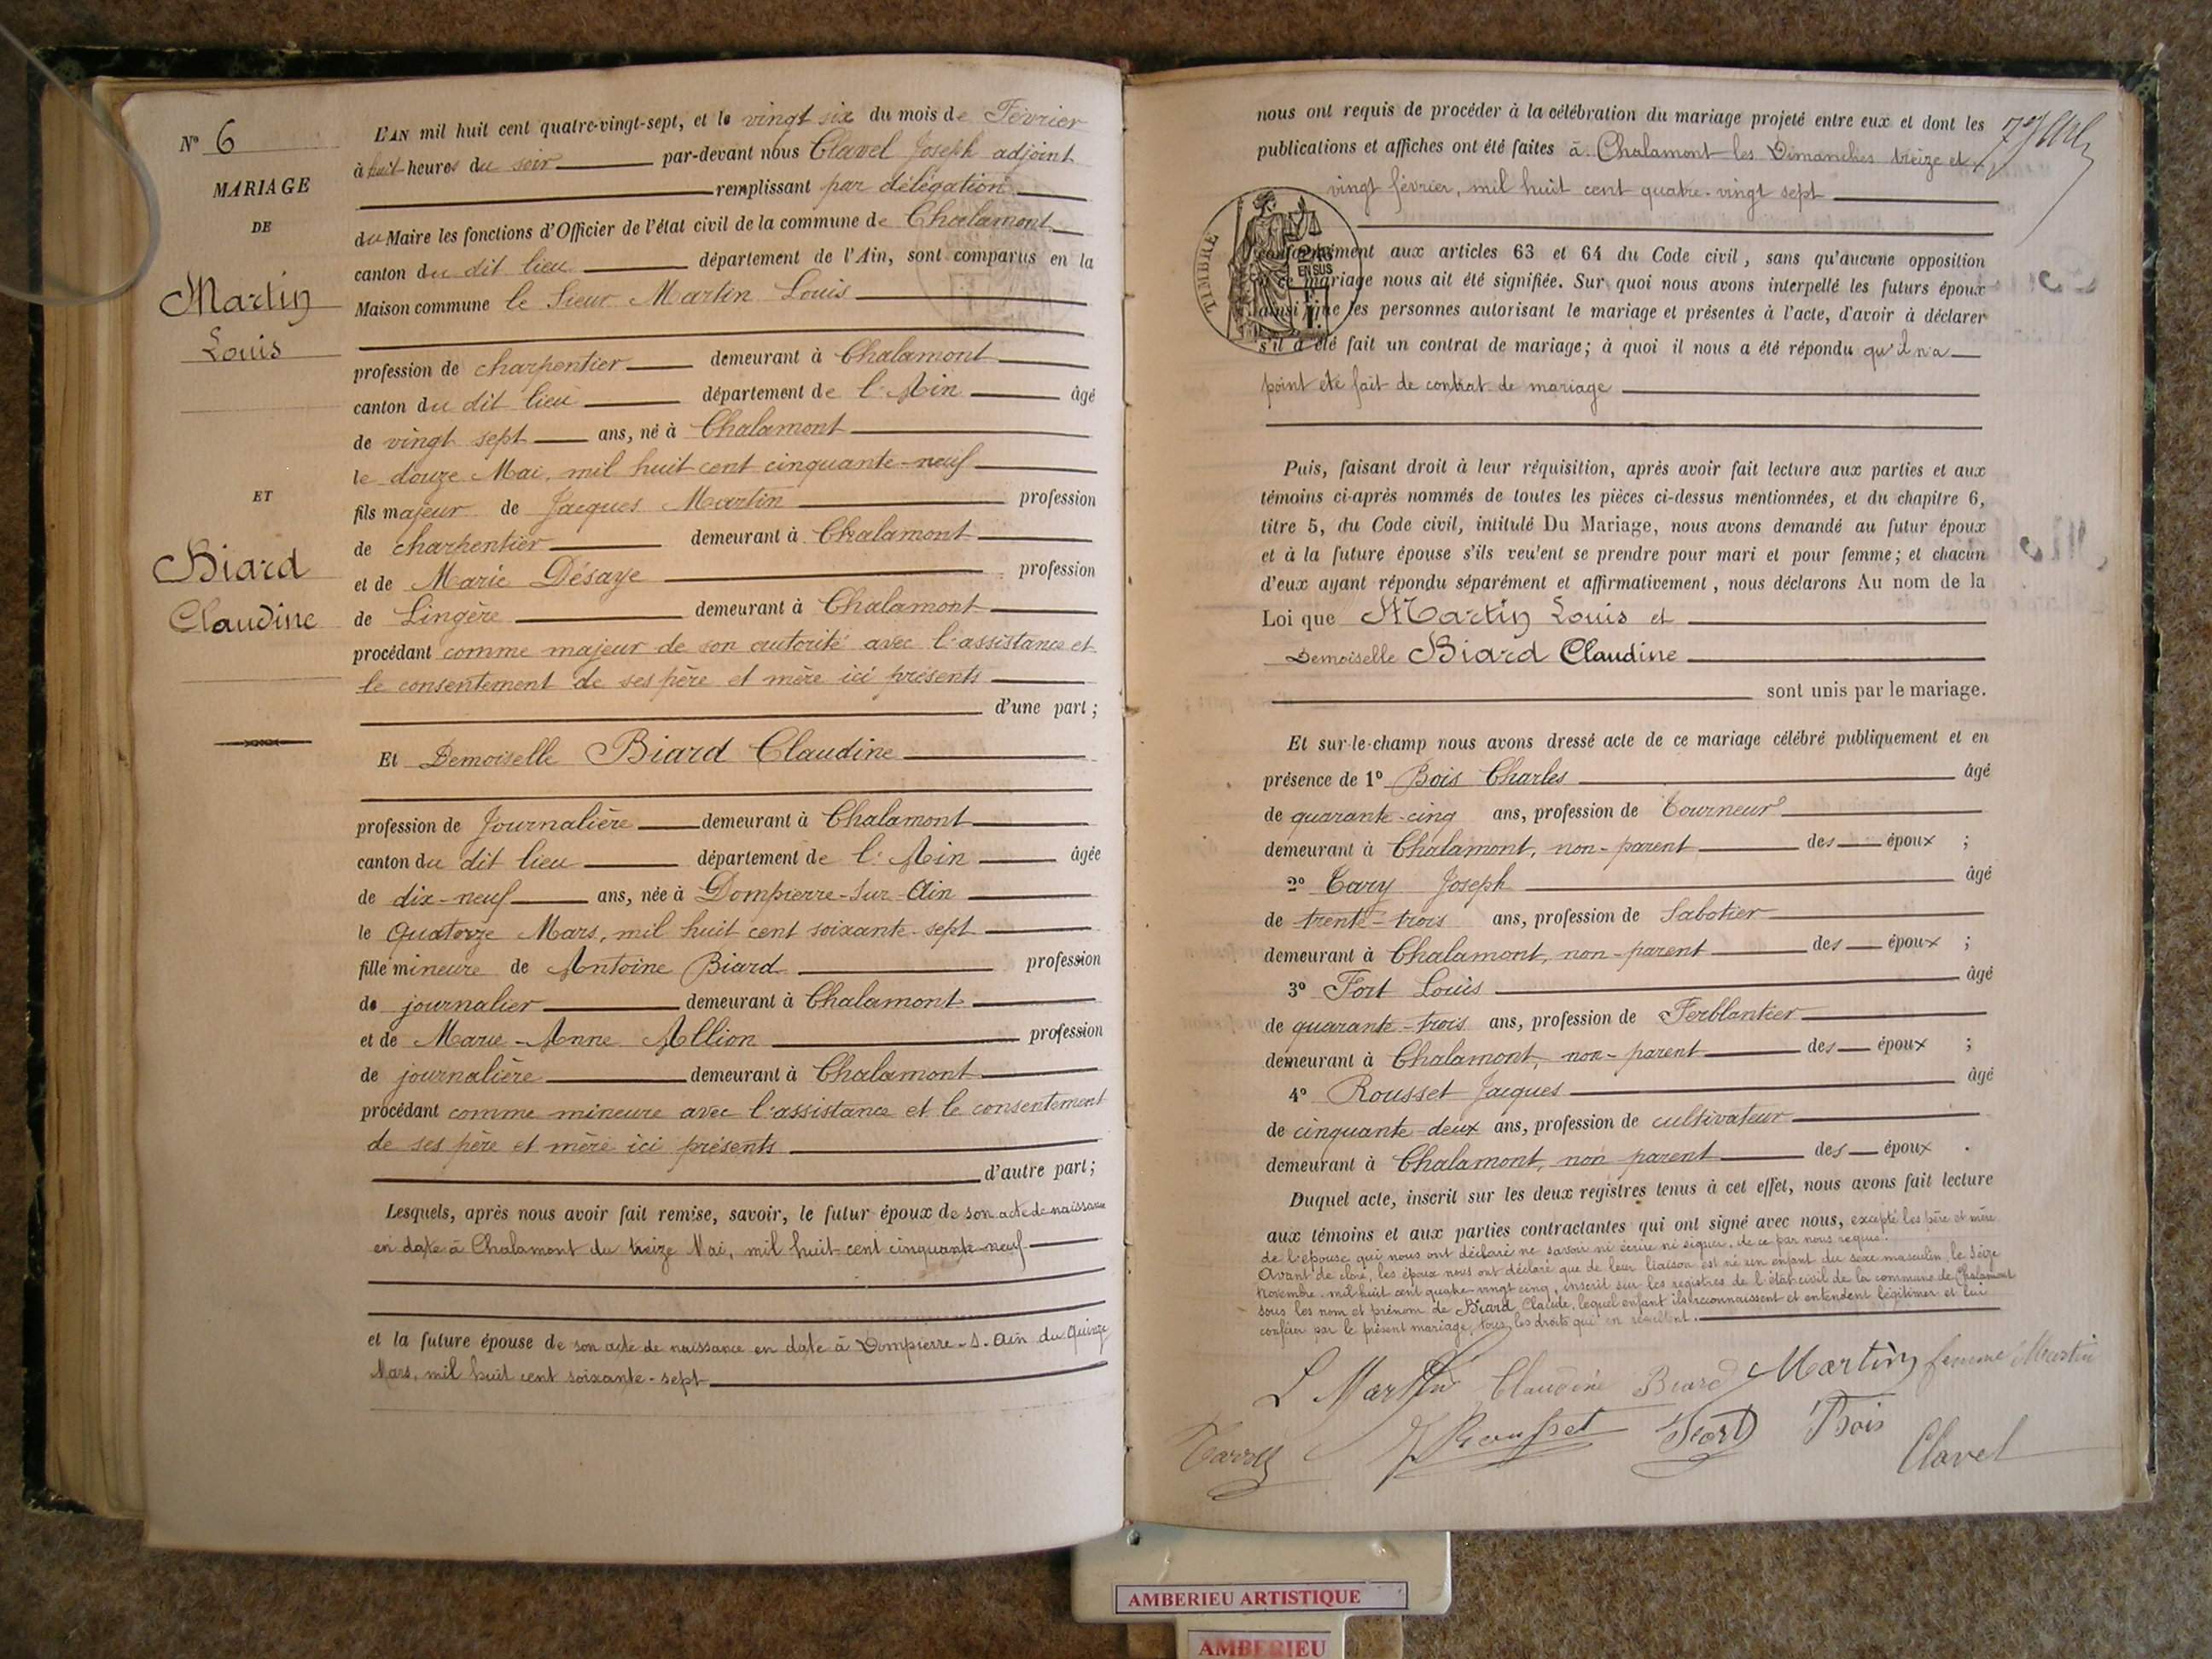 N° 6
MARIAGE
DE
Martin
Louis
ET
Biard
Claudine
L'AN mil huit cent quatre-vingt-sept, et le vingt six du mois de Février
à huit heures du soir par-devant nous Clavel Joseph adjoint
remplissant par délégation
du Maire les fonctions d'Officier de l'état civil de la commune de Chalamont
canton du dit lieu département de l'Ain, sont comparus en la
Maison commune le Sieur Martin Louis
profession de charpentier demeurant à Chalamont
canton du dit lieu département de l'Ain âgé
de vingt sept ans, né à Chalamont
le douze Mai, mil huit cent cinquante-neuf
fils majeur de Jacques Martin profession
de charpentier demeurant à Chalamont
et de Marie Désaye profession
de Lingère demeurant à Chalamont
procédant comme majeur de son autorité avec l'assistance et
le consentement de ses père et mère ici présents
d'une part ;
Et Demoiselle Biard Claudine
profession de Journalière demeurant à Chalamont
canton du dit lieu département de l'Ain âgée
de dix-neuf ans, née à Dompierre-sur-Ain
le Quatorze Mars, mil huit cent soixante-sept
fille mineure de Antoine Biard profession
de journalier demeurant à Chalamont
et de Marie-Anne Allion profession
de journalière demeurant à Chalamont
procédant comme mineure avec l'assistance et le consentement
de ses père et mère ici présents
d'autre part ;
Lesquels, après nous avoir fait remise, savoir, le futur époux de son acte de naissance
en date à Chalamont du treize Mai, mil huit cent cinquante-neuf
et la future épouse de son acte de naissance en date à Dompierre-s-Ain du Quinze
Mars, mil huit cent soixante-sept
nous ont requis de procéder à la célébration du mariage projeté entre eux et dont les
publications et affiches ont été faites à Chalamont les Dimanches treize et
vingt février, mil huit cent quatre-vingt sept
TIMBRE
EN SUS
conformément aux articles 63 et 64 du Code civil, sans qu'aucune opposition
à ce mariage nous ait été signifiée. Sur quoi nous avons interpellé les futurs époux
ainsi que les personnes autorisant le mariage et présentes à l'acte, d'avoir à déclarer
s'il a été fait un contrat de mariage ; à quoi il nous a été répondu qu'il n'a
point été fait de contrat de mariage
Puis, faisant droit à leur réquisition, après avoir fait lecture aux parties et aux
témoins ci-après nommés de toutes les pièces ci-dessus mentionnées, et du chapitre 6,
titre 5, du Code civil, intitulé Du Mariage, nous avons demandé au futur époux
et à la future épouse s'ils veulent se prendre pour mari et pour femme ; et chacun
d'eux ayant répondu séparément et affirmativement, nous déclarons Au nom de la
Loi que Martin Louis et
Demoiselle Biard Claudine
sont unis par le mariage.
Et sur-le-champ nous avons dressé acte de ce mariage célébré publiquement et en
présence de 1° Bois Charles âgé
de quarante-cinq ans, profession de Tourneur
demeurant à Chalamont, non-parent des époux ;
2° Tary Joseph âgé
de trente-trois ans, profession de Sabotier
demeurant à Chalamont, non-parent des époux ;
3° Fort Louis âgé
de quarante-trois ans, profession de Ferblantier
demeurant à Chalamont, non-parent des époux ;
4° Rousset Jacques âgé
de cinquante deux ans, profession de cultivateur
demeurant à Chalamont, non parent des époux .
Duquel acte, inscrit sur les deux registres tenus à cet effet, nous avons fait lecture
aux témoins et aux parties contractantes qui ont signé avec nous, excepté les père et mère
de l'épouse qui nous ont déclaré ne savoir ni écrire ni signer, de ce par nous requis.
Avant de clore, les époux nous ont déclaré que de leur liaison est né un enfant du sexe masculin le seize
novembre mil huit cent quatre-vingt cinq, inscrit sur les registres de l'état civil de la commune de Chalamont
sous les nom et prénom de Biard Claude, lequel enfant ils reconnaissent et entendent légitimer et lui
conférer par le présent mariage, tous les droits qui en résultent.
L Martin Claudine Biard Martin femme Martin
J Rousset Fort Bois Clavel
AMBERIEU ARTISTIQUE
AMBERIEU